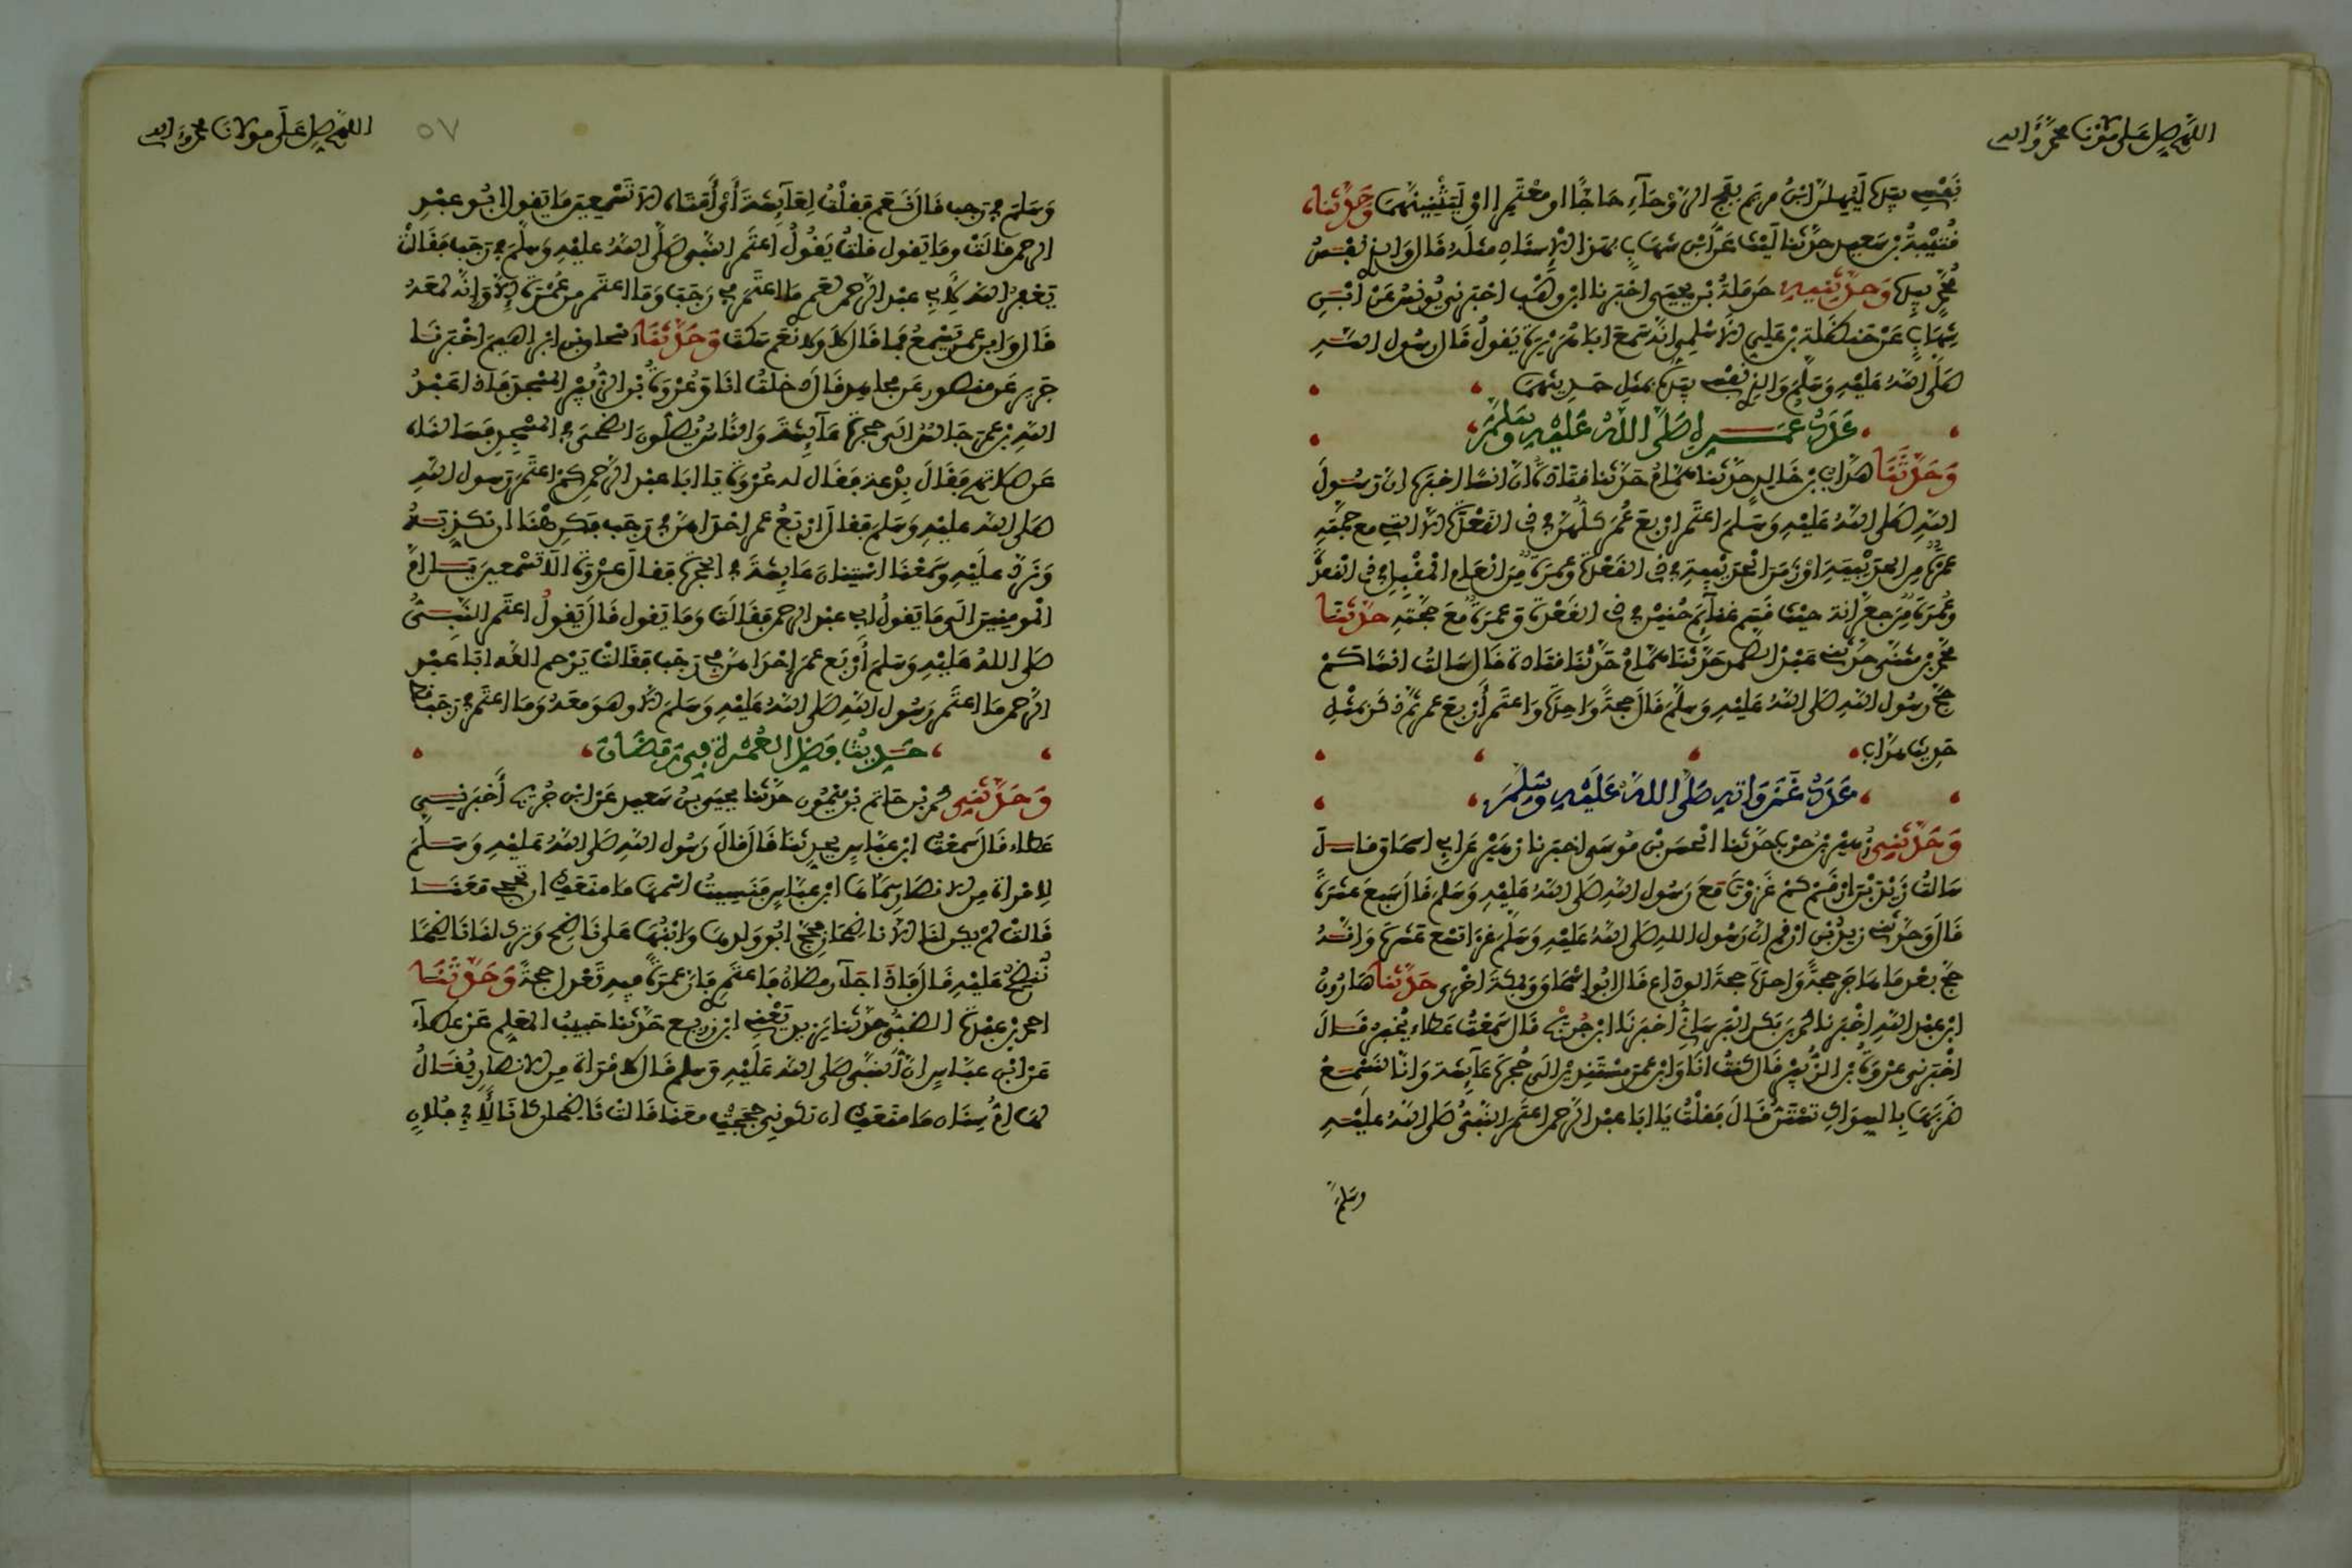 اللهم صل على مولانا محمد وآله
نفسي بيده ليهلن ابن مريم بفج الروحاء حاجا او معتمرا او ليثنينهما وحدثناه
قتيبة بن سعيد حدثنا ليث عن ابن شهاب بهذا الاسناد مثله قال والذي نفس
محمد بيده وحدثنيه حرملة بن يحيى اخبرنا ابن وهب اخبرني يونس عن ابن
شهاب عن حنظلة بن علي الاسلمي انه سمع ابا هريرة يقول قال رسول الله
صلى الله عليه وسلم والذي نفسي بيده بمثل حديثهما
عدد عمره صلى الله عليه وسلم
وحدثنا هداب بن خالد حدثنا همام حدثنا قتادة ان انسا اخبره ان رسول
الله صلى الله عليه وسلم اعتمر اربع عمر كلهن في ذي القعدة الا التي مع حجته
عمرة من الحديبية او زمن الحديبية في ذي القعدة وعمرة من العام المقبل في ذي القعدة
وعمرة من جعرانة حيث قسم غنائم حنين في ذي القعدة وعمرة مع حجته حدثنا
محمد بن مثنى حدثني عبد الصمد حدثنا همام حدثنا قتادة قال سالت انسا كم
حج رسول الله صلى الله عليه وسلم قال حجة واحدة واعتمر اربع عمر ثم ذكر بمثل
حديث هداب
عدد غزواته صلى الله عليه وسلم
وحدثني زهير بن حرب حدثنا الحسن بن موسى اخبرنا زهير عن ابي اسحاق قال
سالت زيد بن ارقم كم غزوت مع رسول الله صلى الله عليه وسلم قال سبع عشرة
قال وحدثني زيد بن ارقم ان رسول الله صلى الله عليه وسلم غزا تسع عشرة وانه
حج بعد ما هاجر حجة واحدة حجة الوداع قال ابو اسحاق وبمكة اخرى حدثنا هارون
ابن عبد الله اخبرنا محمد بن بكر البرساني اخبرنا ابن جريج قال سمعت عطاء يخبر قال
اخبرني عروة بن الزبير قال كنت انا وابن عمر مستندين الى حجرة عائشة وانا لنسمع
ضربها بالسواك تستن قال فقلت يا ابا عبد الرحمن اعتمر النبي صلى الله عليه
وسلم
اللهم صل على مولانا محمد وآله
٥٧
وسلم في رجب قال نعم فقلت لعائشة أي أمتاه الا تسمعين ما يقول ابو عبد
الرحمن قالت وما يقول قلت يقول اعتمر النبي صلى الله عليه وسلم في رجب فقالت
يغفر الله لابي عبد الرحمن لعمري ما اعتمر في رجب وما اعتمر من عمرة الا وانه لمعه
قال وابن عمر يسمع فما قال لا ولا نعم سكت وحدثنا اسحاق بن ابراهيم اخبرنا
جرير عن منصور عن مجاهد قال دخلت انا وعروة بن الزبير المسجد فاذا عبد
الله بن عمر جالس الى حجرة عائشة والناس يصلون الضحى في المسجد فسالناه
عن صلاتهم فقال بدعة فقال له عروة يا ابا عبد الرحمن كم اعتمر رسول الله
صلى الله عليه وسلم فقال اربع عمر احداهن في رجب فكرهنا ان نكذبه
ونرد عليه وسمعنا استنان عائشة في الحجرة فقال عروة الا تسمعين يا ام
المومنين الى ما يقول ابو عبد الرحمن فقالت وما يقول قال يقول اعتمر النبي
صلى الله عليه وسلم أربع عمر احداهن في رجب فقالت يرحم الله ابا عبد
الرحمن ما اعتمر رسول الله صلى الله عليه وسلم الا وهو معه وما اعتمر في رجب قط
حديث فضل العمرة في رمضان
وحدثني محمد بن حاتم بن ميمون حدثنا يحيى بن سعيد عن ابن جريج أخبرني
عطاء قال سمعت ابن عباس يحدثنا قال قال رسول الله صلى الله عليه وسلم
لامراة من الانصار سماها ابن عباس فنسيت اسمها ما منعك ان تحجي معنا
قالت لم يكن لنا الا ناضحان فحج ابو ولدها وابنها على ناضح وترك لنا ناضحا
ننضح عليه قال فاذا جاء رمضان فاعتمري فان عمرة فيه تعدل حجة وحدثنا
احمد بن عبدة الضبي حدثنا يزيد يعني ابن زريع حدثنا حبيب المعلم عن عطاء
عن ابن عباس ان النبي صلى الله عليه وسلم قال لامراة من الانصار يقال
لها ام سنان ما منعك ان تكوني حججت معنا قالت ناضحان كانا لابي فلان